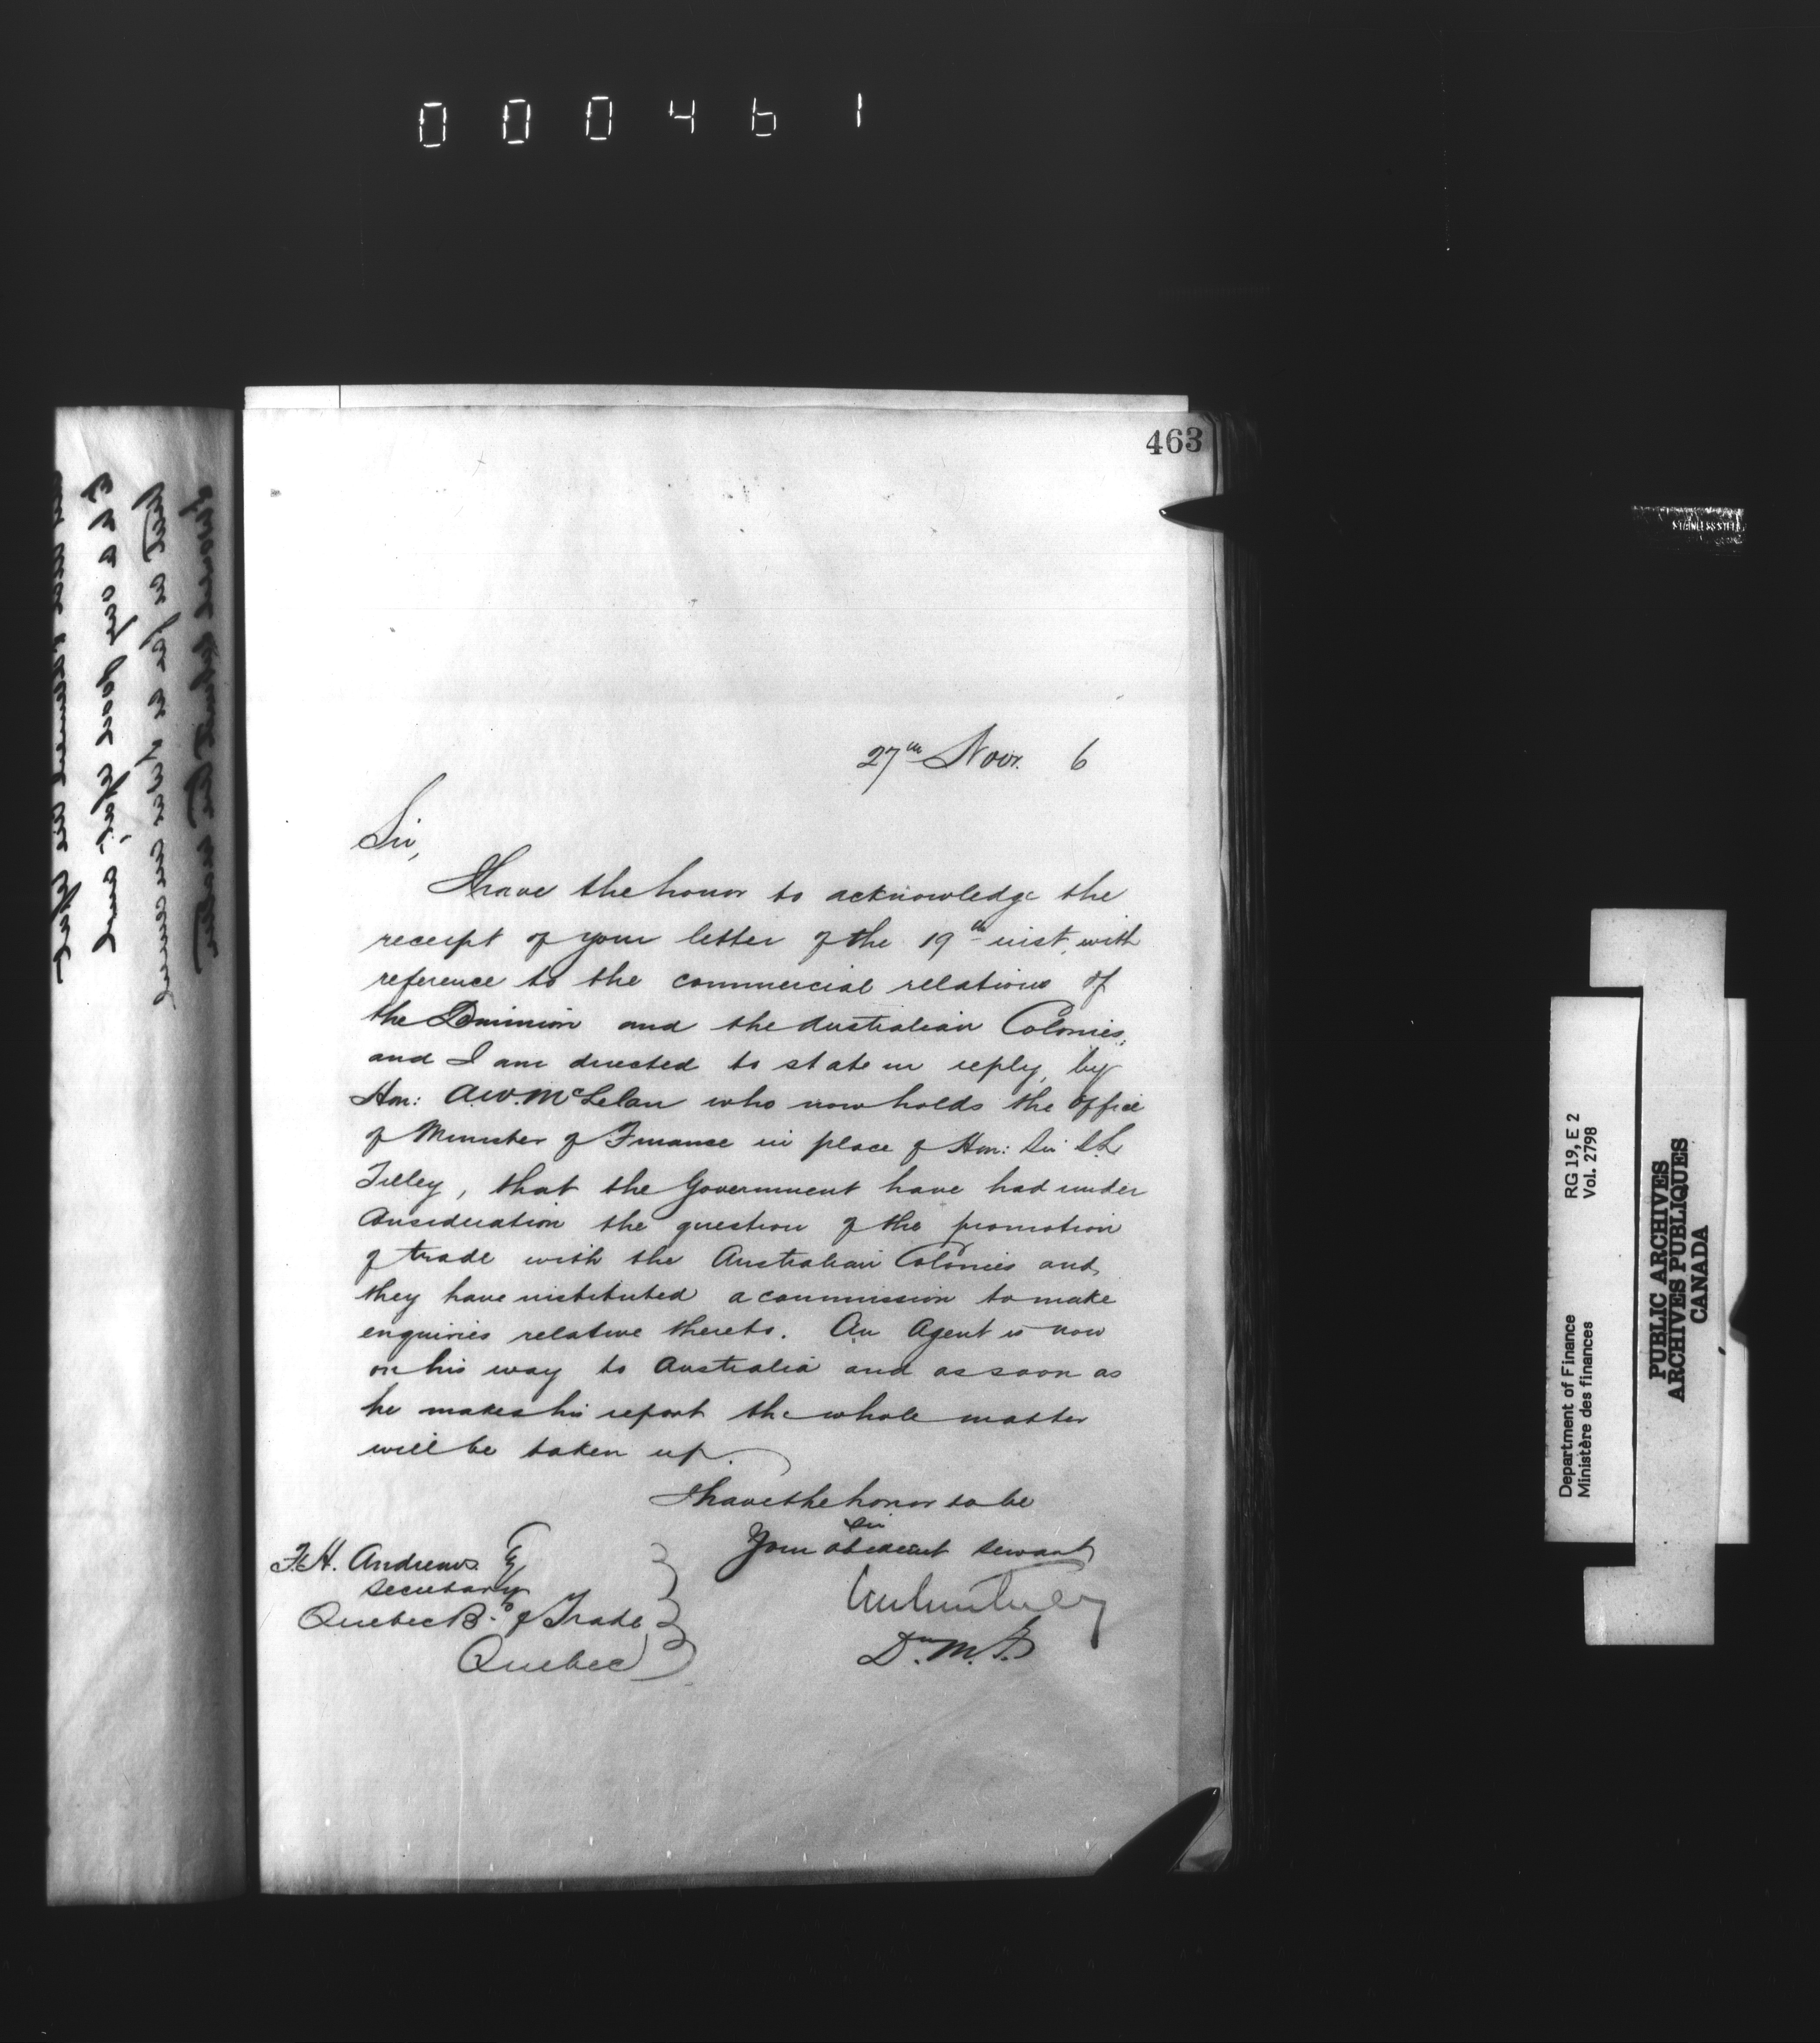 000461
463
27th Novr. 6
Sir,
I have the honor to acknowledge the
receipt of your letter of the 19th inst, with
reference to the commercial relations of
the Dominion and the Australian Colonies,
and I am directed to state in reply, by
Hon: A.W. McLelan who now holds the office
of Minister of Finance in place of Hon: Sir S.L.
Tilley, that the Government have had under
consideration the question of the promotion
of trade with the Australian Colonies and
they have instituted a commission to make
enquiries relative thereto. An Agent is now
on his way to Australia and as soon as
he makes his report the whole matter
will be taken up.
I have the honor to be
Sir
Your obedient servant
D. M. F.
F.H. Andrews Esq
Secretary
Quebec Bd of Trade
Quebec
STAINLESS STEEL
Department of Finance RG 19, E 2
Ministère des finances Vol. 2798
PUBLIC ARCHIVES
ARCHIVES PUBLIQUES
CANADA